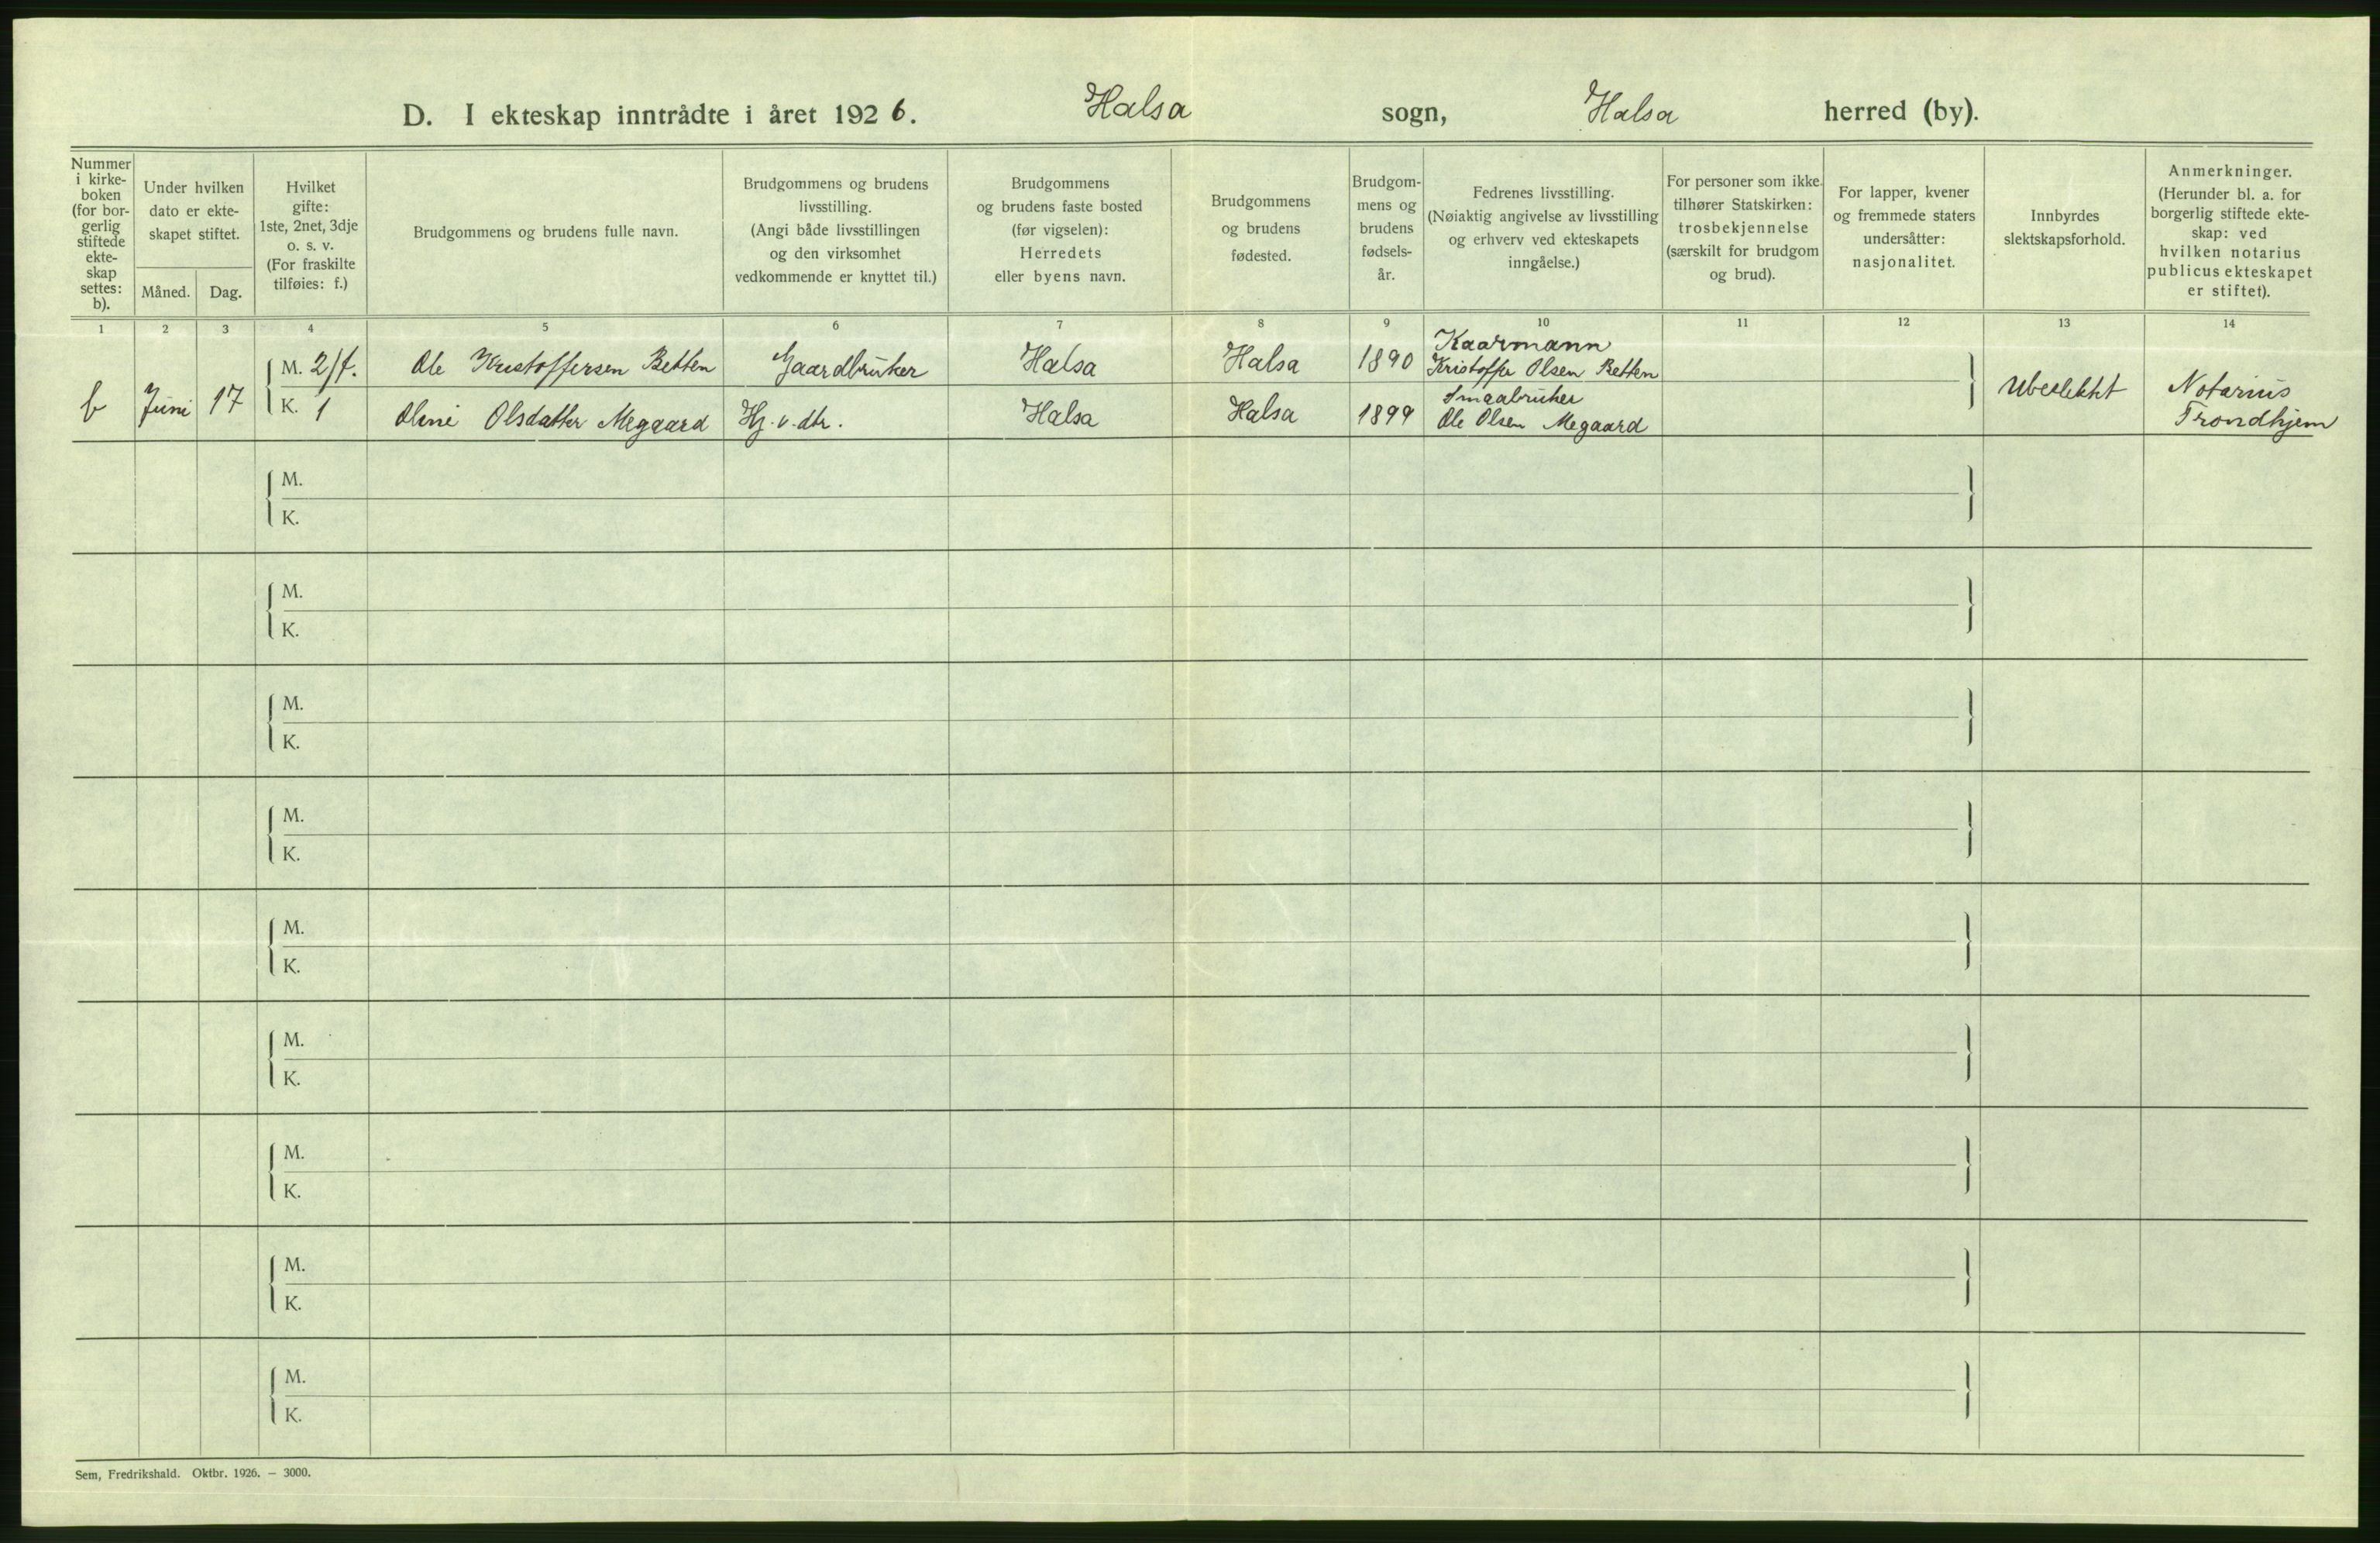 D. I ekteskap inntrådte i året 1926. Halsa sogn, Halsa herred (by).
Nummer
i kirke-
boken
(for bor-
gerlig
stiftede
ekte-
skap
settes:
b).
Under hvilken
dato er ekte-
skapet stiftet.
Måned. Dag.
Hvilket
gifte:
1ste, 2net, 3dje
o. s. v.
(For fraskilte
tilføies: f.)
Brudgommens og brudens fulle navn.
Brudgommens og brudens
livsstilling.
(Angi både livsstillingen
og den virksomhet
vedkommende er knyttet til.)
Brudgommens
og brudens faste bosted
(før vigselen):
Herredets
eller byens navn.
Brudgommens
og brudens
fødested.
Brudgom-
mens og
brudens
fødsels-
år.
Fedrenes livsstilling.
(Nøiaktig angivelse av livsstilling
og erhverv ved ekteskapets
inngåelse.)
For personer som ikke
tilhører Statskirken:
trosbekjennelse
(særskilt for brudgom
og brud).
For lapper, kvener
og fremmede staters
undersåtter:
nasjonalitet.
Innbyrdes
slektskapsforhold.
Anmerkninger.
(Herunder bl. a. for
borgerlig stiftede ekte-
skap: ved
hvilken notarius
publicus ekteskapet
er stiftet).
1 2 3 4 5 6 7 8 9 10 11 12 13 14
b Juni 17
M. 2/f. Ole Kristoffersen Betten Gaardbruker Halsa Halsa 1890 Kaarmann
Kristoffer Olsen Betten
K. 1 Oline Olsdatter Megaard Hj. v. dtr. Halsa Halsa 1899 Smaabruker
Ole Olsen Megaard
Ubeslektet
Notarius
Trondhjem
M.
K.
M.
K.
M.
K.
M.
K.
M.
K.
M.
K.
M.
K.
M.
K.
M.
K.
Sem, Fredrikshald. Oktbr. 1926. — 3000.